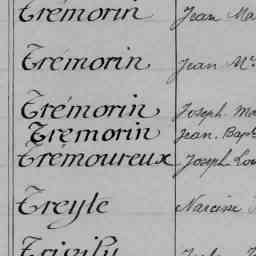 Trémorin Jean Ma
Trémorin Jean M
Trémorin Joseph Mo
Tremorin Jean. Bapt
Trémoureux Joseph Lou
Treyle Narcisse
Trivily